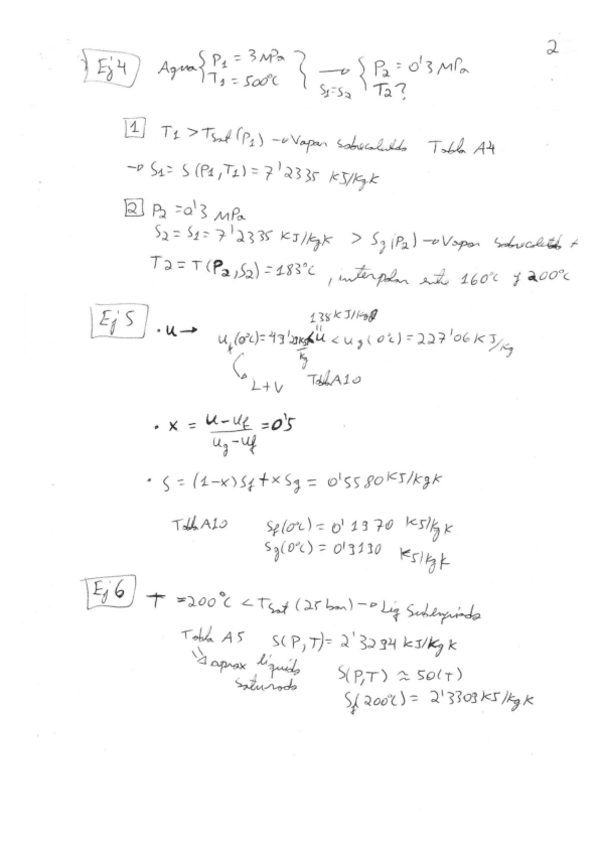 2
Ej 4 Agua { P1 = 3 MPa T1 = 500°C } → S1=S2 { P2 = 0'3 MPa T2?
1 T1 > Tsat (P1) → Vapor sobrecalentado Tabla A4
→ S1 = S (P1, T1) = 7'2335 KJ/KgK
2 P2 = 0'3 MPa
S2 = S1 = 7'2335 KJ/KgK > Sg (P2) → Vapor
T2 = T (P2, S2) = 183°C, interpolar entre 160°C y 200°C
138 KJ/Kg
Ej 5 · u → uf (0°C) = 43' < u < ug (0°C) = 227'06 KJ/Kg
L+V Tabla A10
· x = (u - uf)/(ug - uf) = 0'5
· S = (1-x) Sf + x Sg = 0'5580 KJ/KgK
Tabla A10 Sf (0°C) = 0'1970 KJ/KgK
Sg (0°C) = 0'9130 KJ/KgK
Ej 6 T = 200°C < Tsat (25 bar) → Liq Subenfriado
Tabla A5 S(P,T) = 2'3294 KJ/KgK
aprox líquido S(P,T) ≈ (T)
saturado Sf (200°C) = 2'3309 KJ/KgK